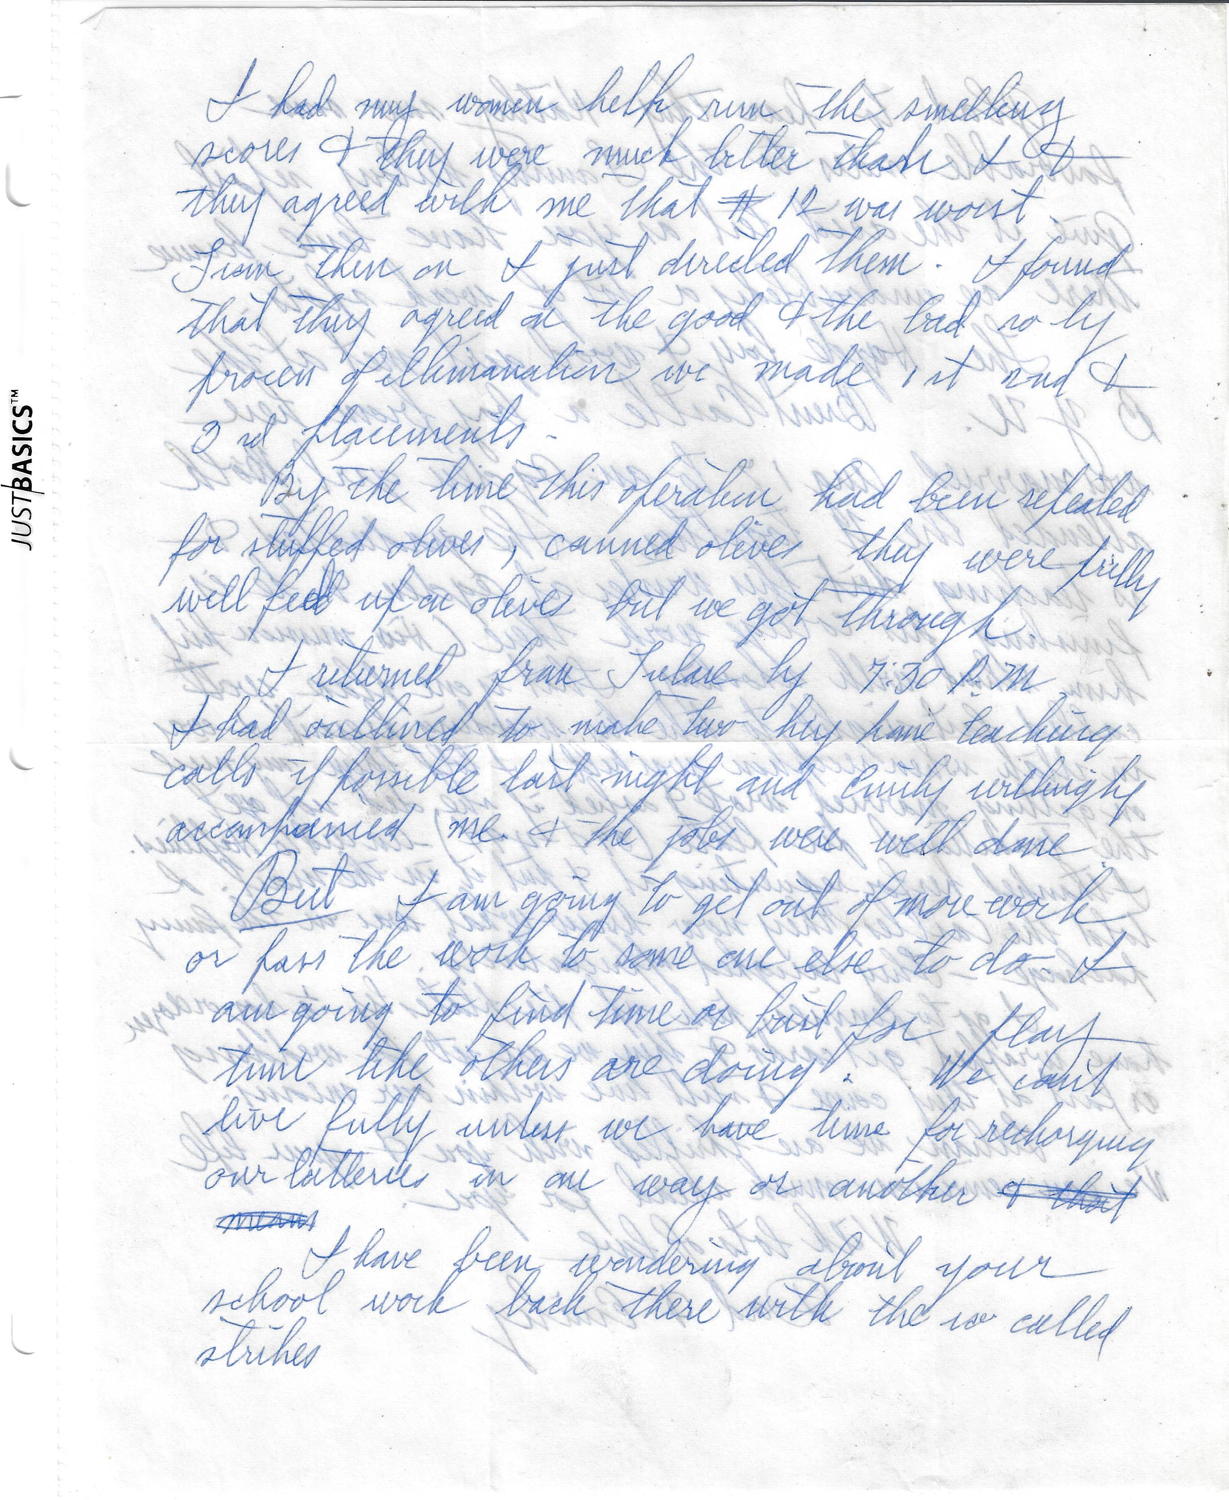 I had my women help run the smelling
scores & they were much better than I &
they agreed with me that # 12 was worst.
From then on I just directed them. I found
that they agreed on the good & the bad so by
process of elliminanation we made 1st 2nd &
3rd placements.
By the time this operation had been repeated
for stuffed olives, canned olives, they were pretty
well feed up on olives but we got through.
I returned from Tulare by 7:30 P.M.
I had outlined to make two key home teaching
calls if possible last night and Emily willingly
accompanied me. & the jobs were well done.
But I am going to get out of more work
or pass the work to some one else to do I
am going to find time or bust for play
time like others are doing. We can't
live fully unless we have time for recharging
our batteries in one way or another & that
means
I have been wondering about your
school work back there with the so called
strikes
JUSTBASICS™